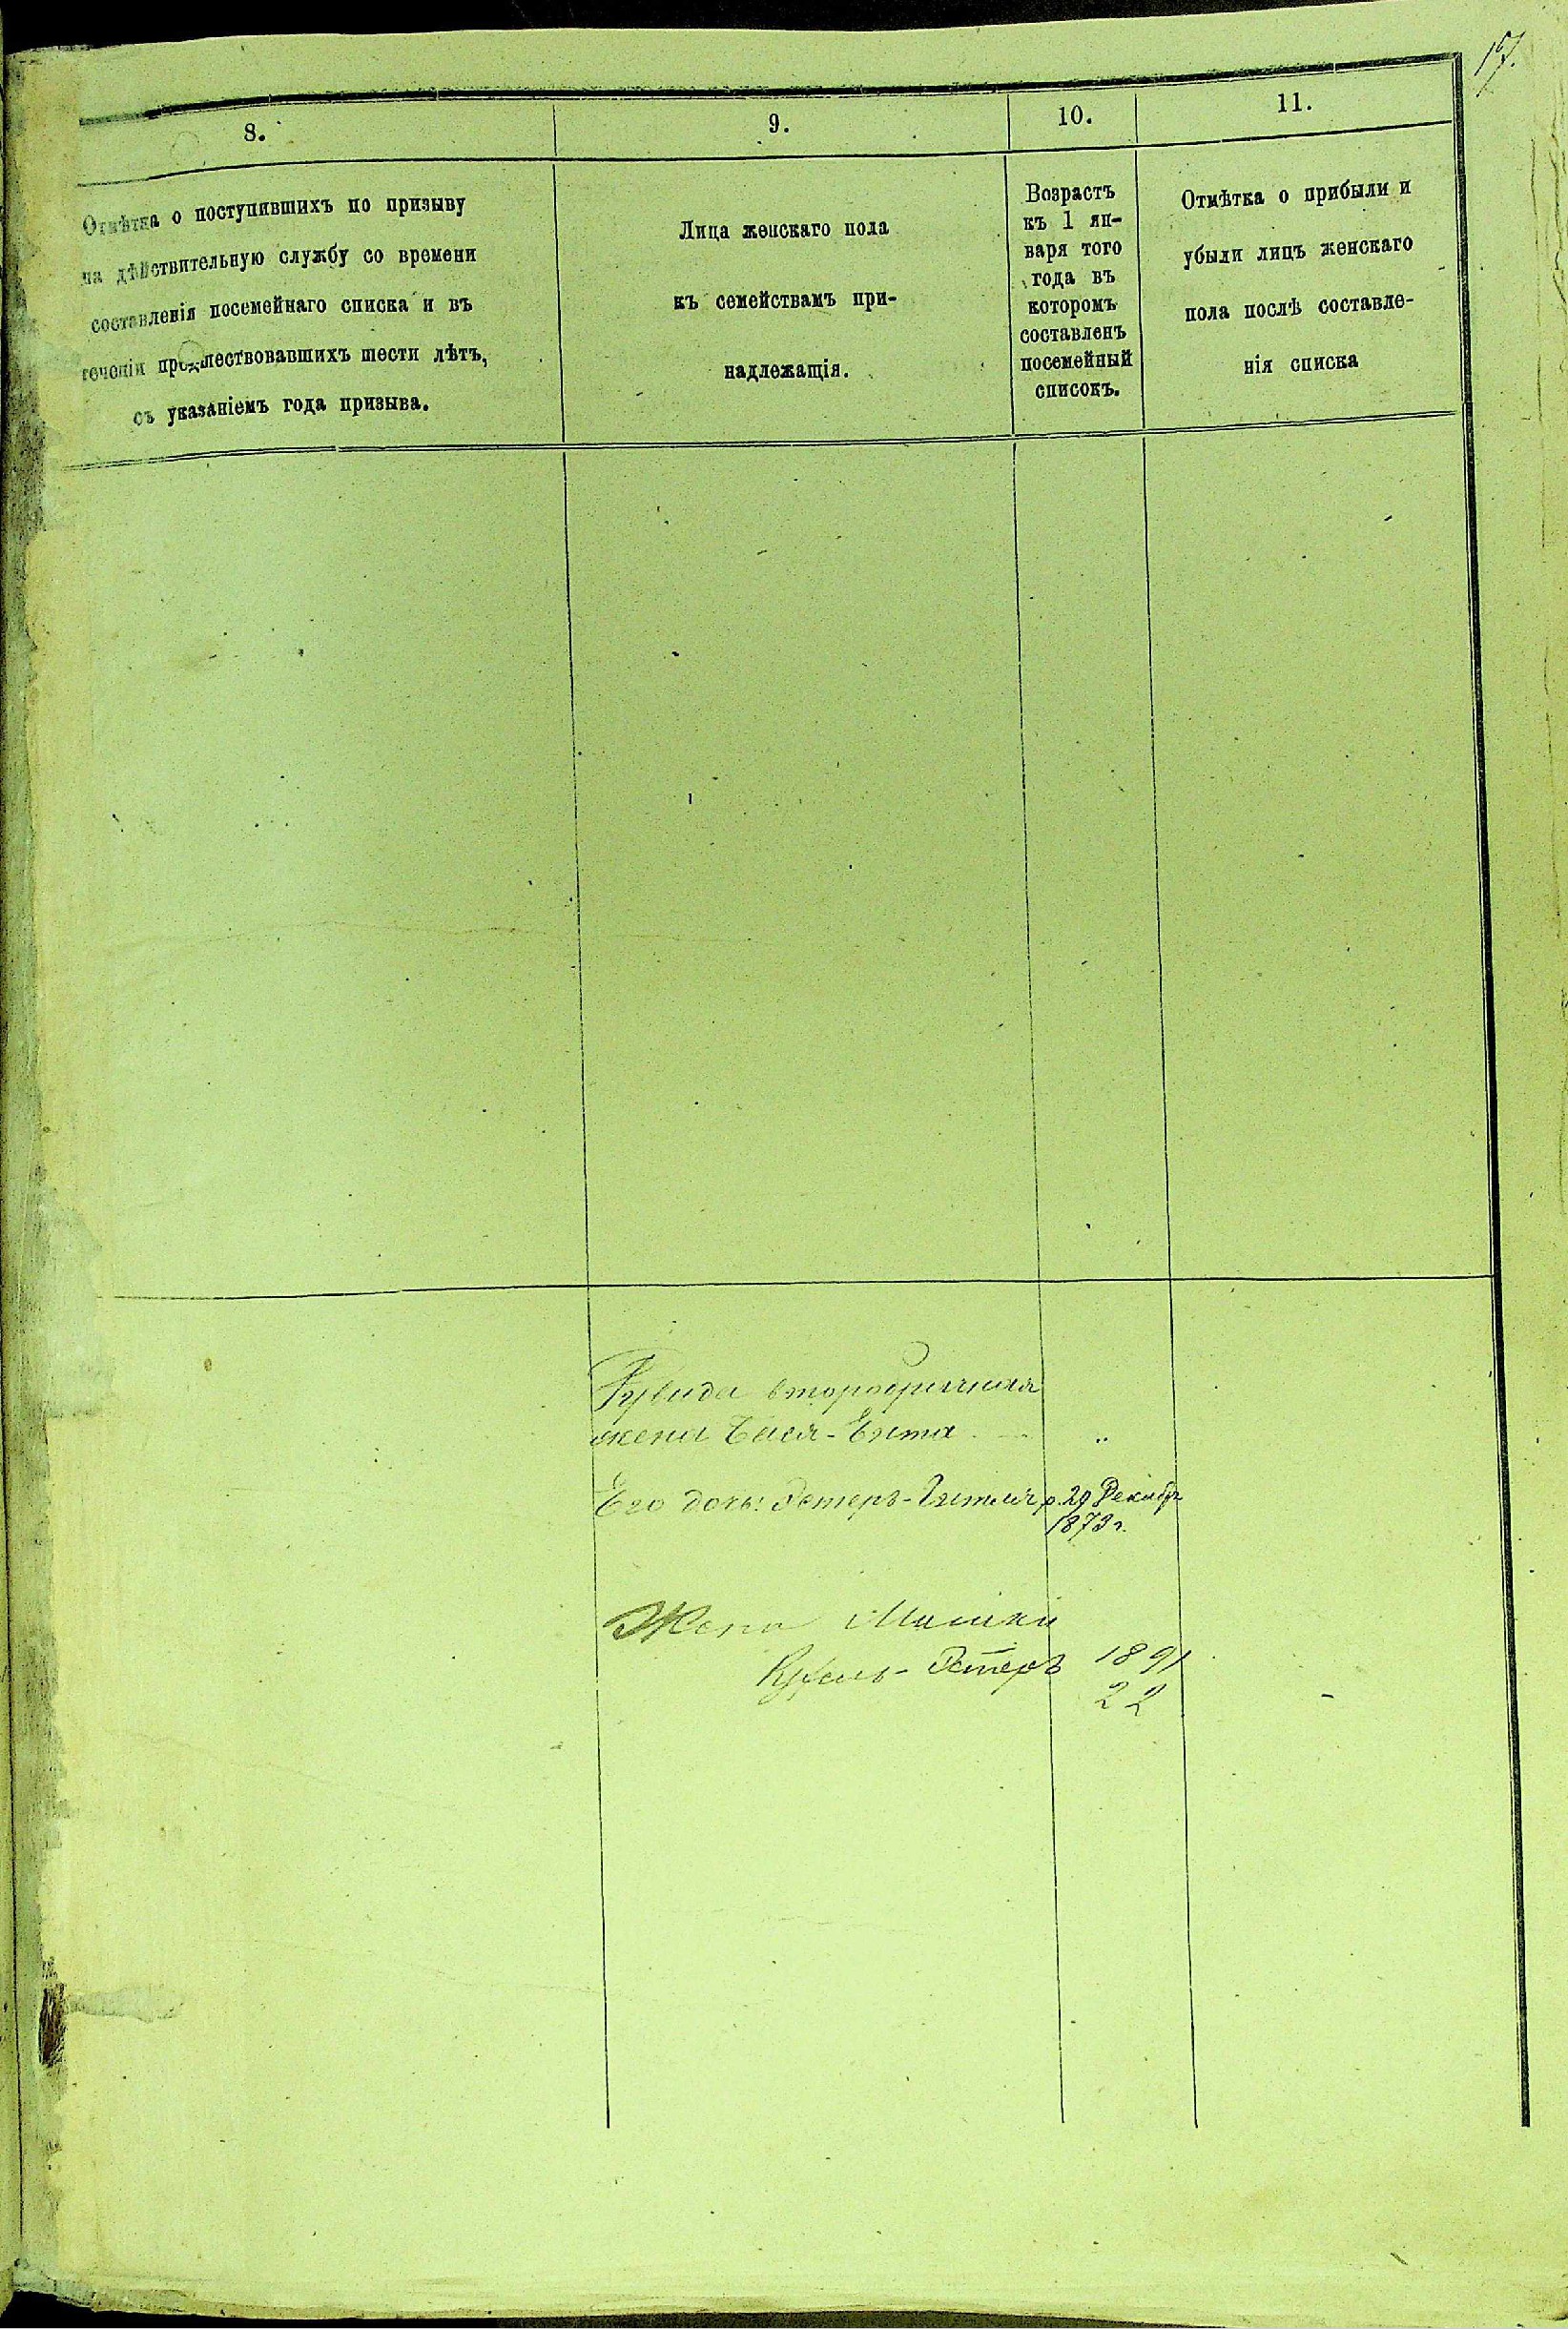 17.
8.
Отмѣтка о поступившихъ по призыву
на дѣйствительную службу со времени
составленія посемейнаго списка и въ
теченіи предшествовавшихъ шести лѣтъ,
съ указаніемъ года призыва.
9.
Лица женскаго пола
къ семействамъ при-
надлежащія.
10.
Возрастъ
къ 1 ян-
варя того
года въ
которомъ
составленъ
посемейный
списокъ.
11.
Отмѣтка о прибыли и
убыли лицъ женскаго
пола послѣ составле-
нія списка
второбрачная
жена Бася-Ента
Его дочь: Эстеръ-Гитля р. 29 Декабр
1873 г.
Жена
Эстеръ 1891
22